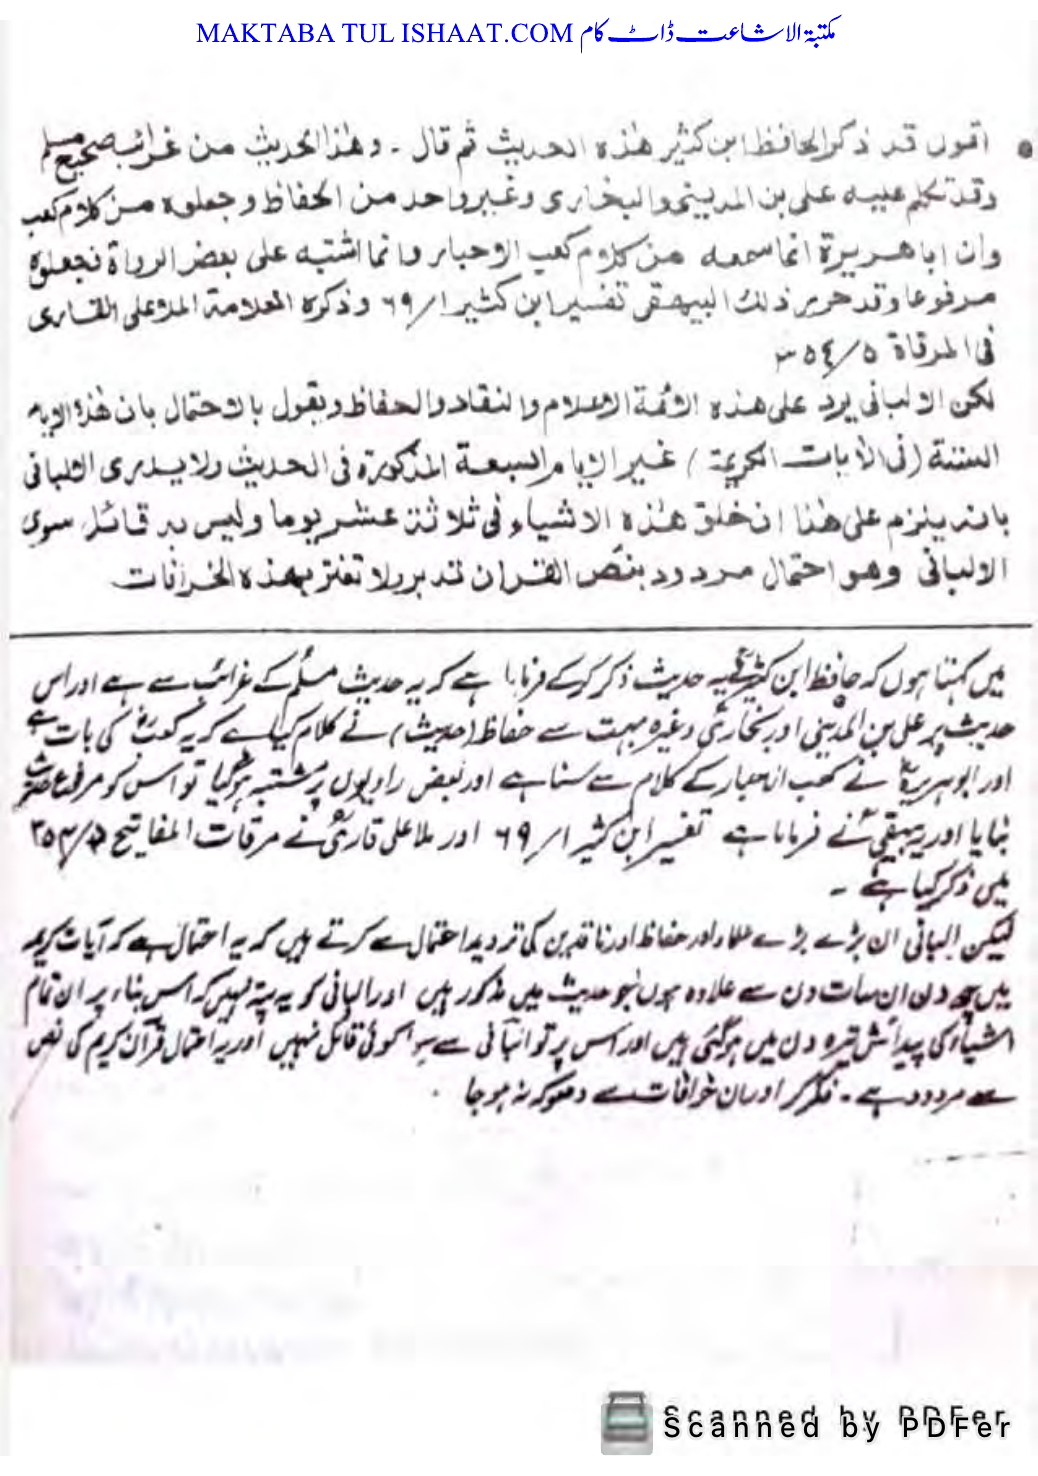 MAKTABA TUL ISHAAT.COM مکتبۃ الاشاعت ڈاٹ کام
اقول قد ذكر الحافظ ابن كثير هذه الحديث ثم قال ۔ وهذا الحديث من غرائب صحيح مسلم
وقد تكلم عليه على بن المدينى والبخارى وغير واحد من الحفاظ وجعلوه من كلام كعب
وان ابا هريرة انما سمعه من كلام كعب الاحبار وانما اشتبه على بعض الرواة فجعلوه
مرفوعا وقد حرر ذلك البيهقى تفسير ابن كثير ۱/۶۹ وذكره العلامة الملا على القارى
فى المرقاة
لكن الالبانى يرد على هذه الائمة الاعلام والنقاد والحفاظ ويقول بالاحتمال بان هذه الايام
الستة (فى الأيات الكريمة) غير الايام السبعة المذكورة فى الحديث ولا يدرى الالبانى
بانه يلزم على هذا ان خلق هذه الاشياء فى ثلاثة عشر يوما وليس به قائل سوى
الالبانى وهو احتمال مردود بنص القران تدبر ولا تغتر بهذه الخرافات
میں کہتا ہوں کہ حافظ ابن کثیرؒ یہ حدیث ذکر کرکے فرمایا ہے کہ یہ حدیث مسلم کے غرائب سے ہے اور اس
حدیث پر علی بن المدینی اور بخاریؒ وغیرہ بہت سے حفاظ (حدیث) نے کلام کیا ہے کہ یہ کعبؓ کی بات ہے
اور ابو ہریرہؓ نے کعب احبار کے کلام سے سنا ہے اور بعض راویوں پر مشتبہ ہوگیا تو اس کو مرفوع حدیث
بنایا اور یہ بیہقیؒ نے فرمایا ہے تفسیر ابن کثیر ۱/۶۹ اور ملا علی قاریؒ نے مرقات المفاتیح
میں ذکر کیا ہے ۔
لیکن البانی ان بڑے بڑے علماء اور حفاظ اور ناقدین کی تردید احتمال سے کرتے ہیں کہ یہ احتمال ہے کہ آیات کریمہ
میں چھ دن ان سات دن سے علاوہ ہوں جو حدیث میں مذکور ہیں اور البانی کو یہ پتہ نہیں کہ اس بناء پر ان تمام
اشیاء کی پیدائش تیرہ دن میں ہوگئی ہیں اور اس پر تو البانی سے سوا کوئی قائل نہیں اور یہ احتمال قرآن کریم کی نص
سے مردود ہے ۔ فکر کر اور ان خرافات سے دھوکہ نہ ہو جا
Scanned by PDFer